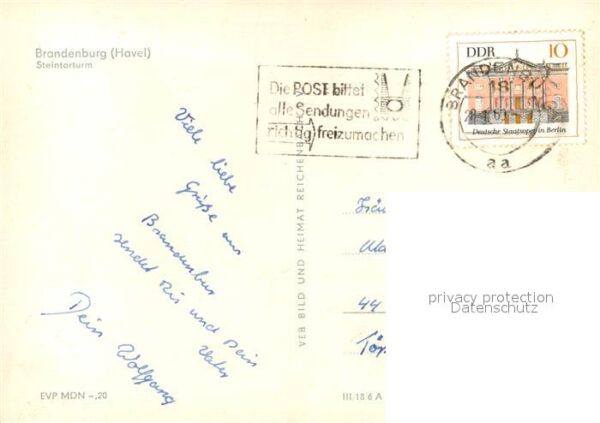 Brandenburg (Havel)
Steintorturm
Die POST bittet
alle Sendungen
richtig freizumachen
DDR 10
BRANDENBURG
18
Deutsche Staatsoper in Berlin
aa
Viele liebe
Grüße aus
Brandenburg
sendet Dir und Dein
Vater
Dein Wolfgang
VEB BILD UND HEIMAT REICHENBACH
44
privacy protection
Datenschutz
EVP MDN –,20
III.18.6 A